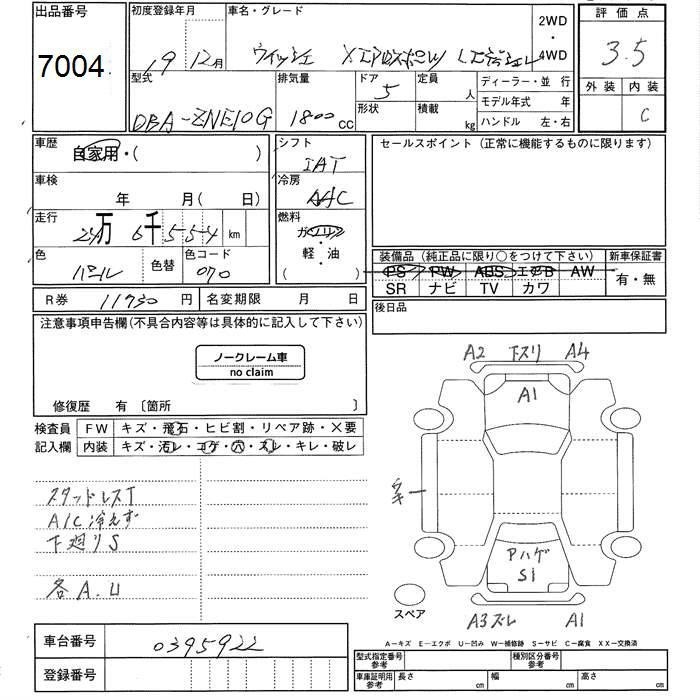 出品番号
7004
初度登録年月
19 12月
車名・グレード
ウィッシュ X エアロスポーツ
2WD
・
4WD
評価点
3.5
外装 内装
C
型式
DBA-ZNE10G
排気量
1800 cc
ドア
5
形状
定員
人
積載
kg
ディーラー・並 行
モデル年式 年
ハンドル 左・右
車歴
自家用・( )
シフト
IAT
セールスポイント (正常に機能するものに限ります)
車検
年 月( 日)
冷房
AAC
走行
万 6千554 km
燃料
ガソリン
軽・油
( )
色
パール
色替
色コード
070
装備品 (純正品に限り○をつけて下さい)
新車保証書
PS PW ABS エアB AW
SR ナビ TV カワ
有・無
R券 11730 円
名変期限 月 日
後日品
注意事項申告欄(不具合内容等は具体的に記入して下さい)
ノークレーム車
no claim
修復歴 有 〔箇所 〕
検査員
記入欄
FW キズ・飛石・ヒビ割・リペア跡・×要
内装 キズ・汚レ・コゲ・穴・スレ・キレ・破レ
スタッドレスT
A/C冷えず
下廻りS
各A.U
A2 下スリ A4
A1
アハゲ
S1
スペア
A3ズレ A1
A-キズ E-エクボ U-凹み W-補修跡 S-サビ C-腐食 XX-交換済
車台番号
0395922
登録番号
型式指定番号
参考
種別区分番号
参考
車庫証明用
参考
長さ cm
幅 cm
高さ cm